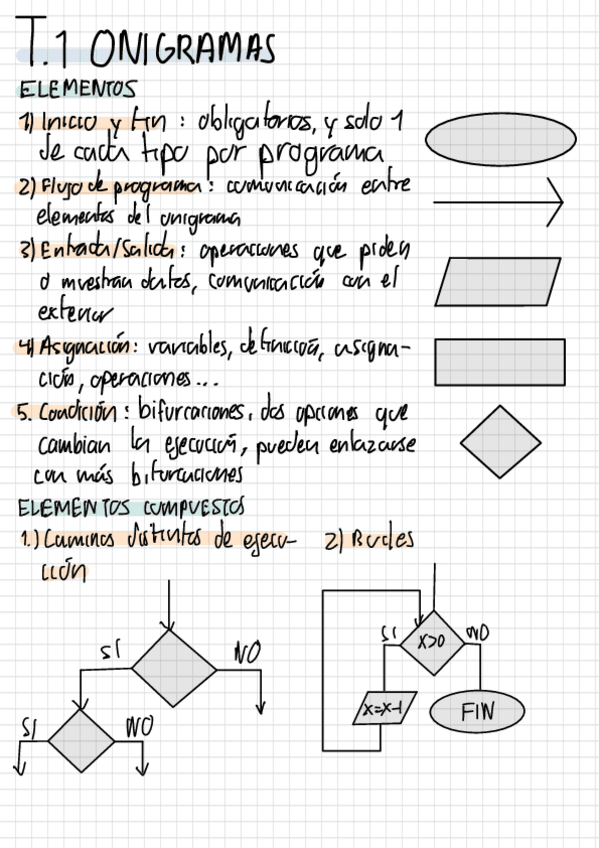 T.1 ONIGRAMAS
ELEMENTOS
1) Inicio y Fin : obligatorios, y solo 1
de cada tipo por programa
2) Flujo de programa : comunicación entre
elementos del onigrama
3) Entrada/Salida : operaciones que piden
o muestran datos, comunicación con el
exterior
4) Asignación : variables, definición, asigna-
ción, operaciones...
5. Condición : bifurcaciones, dos opciones que
cambian la ejecución, pueden enlazarse
con más bifurcaciones
ELEMENTOS COMPUESTOS
1.) Caminos distintos de ejecu-
ción
2) Bucles
SI
NO
SI
NO
SI
X>0
NO
X=X-1
FIN